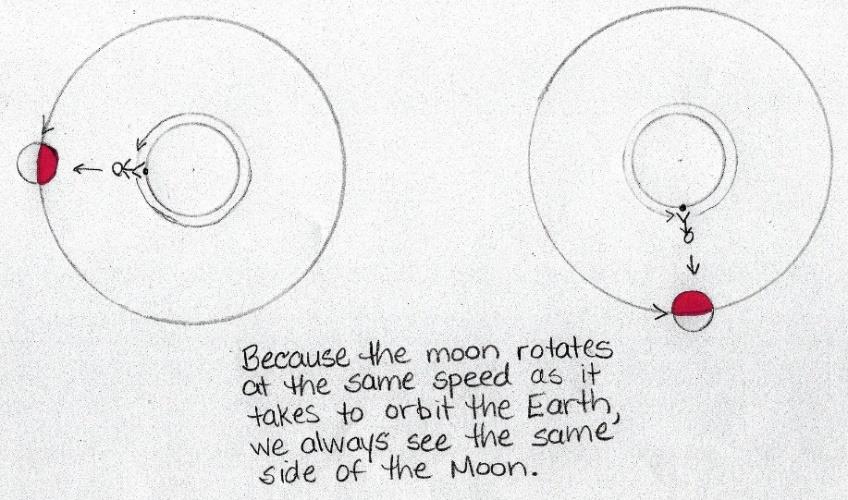 Because the moon rotates
at the same speed as it
takes to orbit the Earth,
we always see the same
side of the Moon.